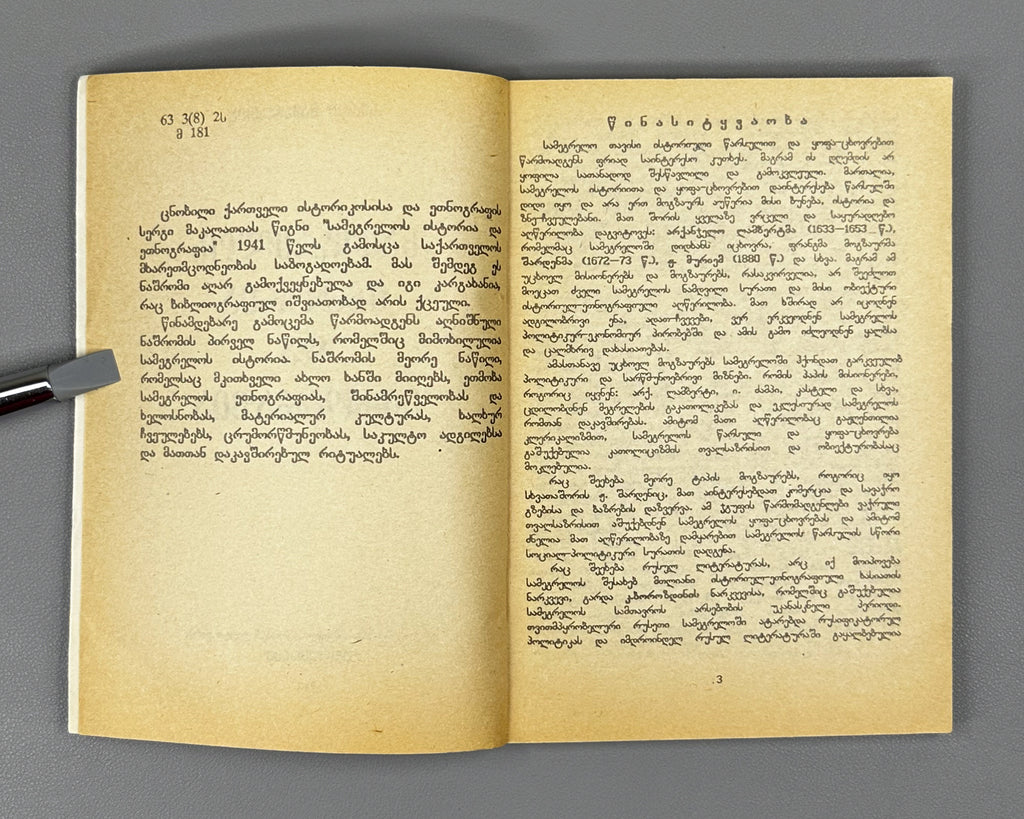 63 3(8) 2ს
მ 181
ცნობილი ქართველი ისტორიკოსისა და ეთნოგრაფის
სერგი მაკალათიას წიგნი "სამეგრელოს ისტორია და
ეთნოგრაფია" 1941 წელს გამოსცა საქართველოს
მხარეთმცოდნეობის საზოგადოებამ. მას შემდეგ ეს
ნაშრომი აღარ გამოქვეყნებულა და იგი კარგახანია,
რაც ბიბლიოგრაფიულ იშვიათობად არის ქცეული.
წინამდებარე გამოცემა წარმოადგენს აღნიშნული
ნაშრომის პირველ ნაწილს, რომელშიც მიმოხილულია
სამეგრელოს ისტორია. ნაშრომის მეორე ნაწილი,
რომელსაც მკითხველი ახლო ხანში მიიღებს, ეთმობა
სამეგრელოს ეთნოგრაფიას, შინამრეწველობას და
ხელოსნობას, მატერიალურ კულტურას, ხალხურ
ჩვეულებებს, ცრუმორწმუნეობას, საკულტო ადგილებსა
და მათთან დაკავშირებულ რიტუალებს.
წინასიტყვაობა
სამეგრელო თავისი ისტორიული წარსულით და ყოფა-ცხოვრებით
წარმოადგენს ფრიად საინტერესო კუთხეს. მაგრამ ის დღემდის არ
ყოფილა სათანადოდ შესწავლილი და გამოკვლეული. მართალია,
სამეგრელოს ისტორიითა და ყოფა-ცხოვრებით დაინტერესება წარსულში
დიდი იყო და არა ერთ მოგზაურს აუწერია მისი ბუნება, ისტორია და
ზნე-ჩვეულებანი. მათ შორის ყველაზე ვრცელი და საყურადღებო
აღწერილობა დაგვიტოვეს: არქანჯელო ლამბერტმა (1633—1653 წ.),
რომელმაც სამეგრელოში დიდხანს იცხოვრა, ფრანგმა მოგზაურმა
შარდენმა (1672—73 წ.), ჟ. მურიემ (1880 წ.) და სხვა. მაგრამ ამ
უცხოელ მისიონერებს და მოგზაურებს, რასაკვირველია, არ შეეძლოთ
მოეცათ ძველი სამეგრელოს ნამდვილი სურათი და მისი ობიექტური
ისტორიულ-ეთნოგრაფიული აღწერილობა. მათ ხშირად არ იცოდნენ
ადგილობრივი ენა, ადათ-ჩვევები, ვერ ერკვეოდნენ სამეგრელოს
პოლიტიკურ-ეკონომიურ პირობებში და ამის გამო იძლეოდნენ ყალბსა
და ცალმხრივ დახასიათებას.
ამასთანავე უცხოელ მოგზაურებს სამეგრელოში ჰქონდათ გარკვეულიბ
პოლიტიკური და სარწმუნოებრივი მიზნები. რომის პაპის მისიონერები,
როგორიც იყვნენ: არქ. ლამბერტი, ი. ძამპი, კასტელი და სხვა,
ცდილობდნენ მეგრელების გაკათოლიკებას და ეკლესიურად სამეგრელოს
რომთან დაკავშირებას. ამიტომ მათი აღწერილობაც გაჟღენთილია
კლერიკალიზმით, სამეგრელოს წარსული და ყოფა-ცხოვრება
გაშუქებულია კათოლიციზმის თვალსაზრისით და ობიექტურობასაც
მოკლებულია.
რაც შეეხება მეორე ტიპის მოგზაურებს, როგორიც იყო
სხვათაშორის ჟ. შარდენიც, მათ აინტერესებდათ კომერცია და სავაჭრო
გზებისა და ბაზრების დაზვერვა. ამ ჯგუფის წარმომადგენლები ვაჭრული
თვალსაზრისით აშუქებდნენ სამეგრელოს ყოფა-ცხოვრებას და ამიტომ
ძნელია მათ აღწერილობაზე დამყარებით სამეგრელოს წარსულის სწორი
სოციალ-პოლიტიკური სურათის დადგენა.
რაც შეეხება რუსულ ლიტერატურას, არც იქ მოიპოვება
სამეგრელოს შესახებ მთლიანი ისტორიულ-ეთნოგრაფიული ხასიათის
ნარკვევი, გარდა კ.ბოროზდინის ნარკვევისა, რომელშიც გაშუქებულია
სამეგრელოს სამთავროს არსებობის უკანასკნელი პერიოდი.
თვითმპყრობელური რუსეთი სამეგრელოში ატარებდა რუსიფიკატორულ
პოლიტიკას და იმდროინდელ რუსულ ლიტერატურაში გაყალბებულია
3